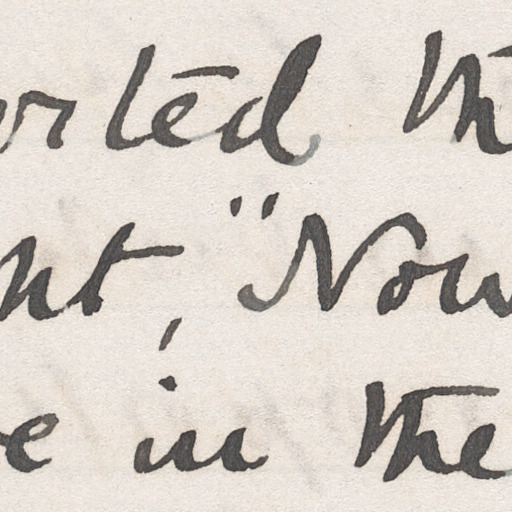 orted th
nt, "Now
e in the